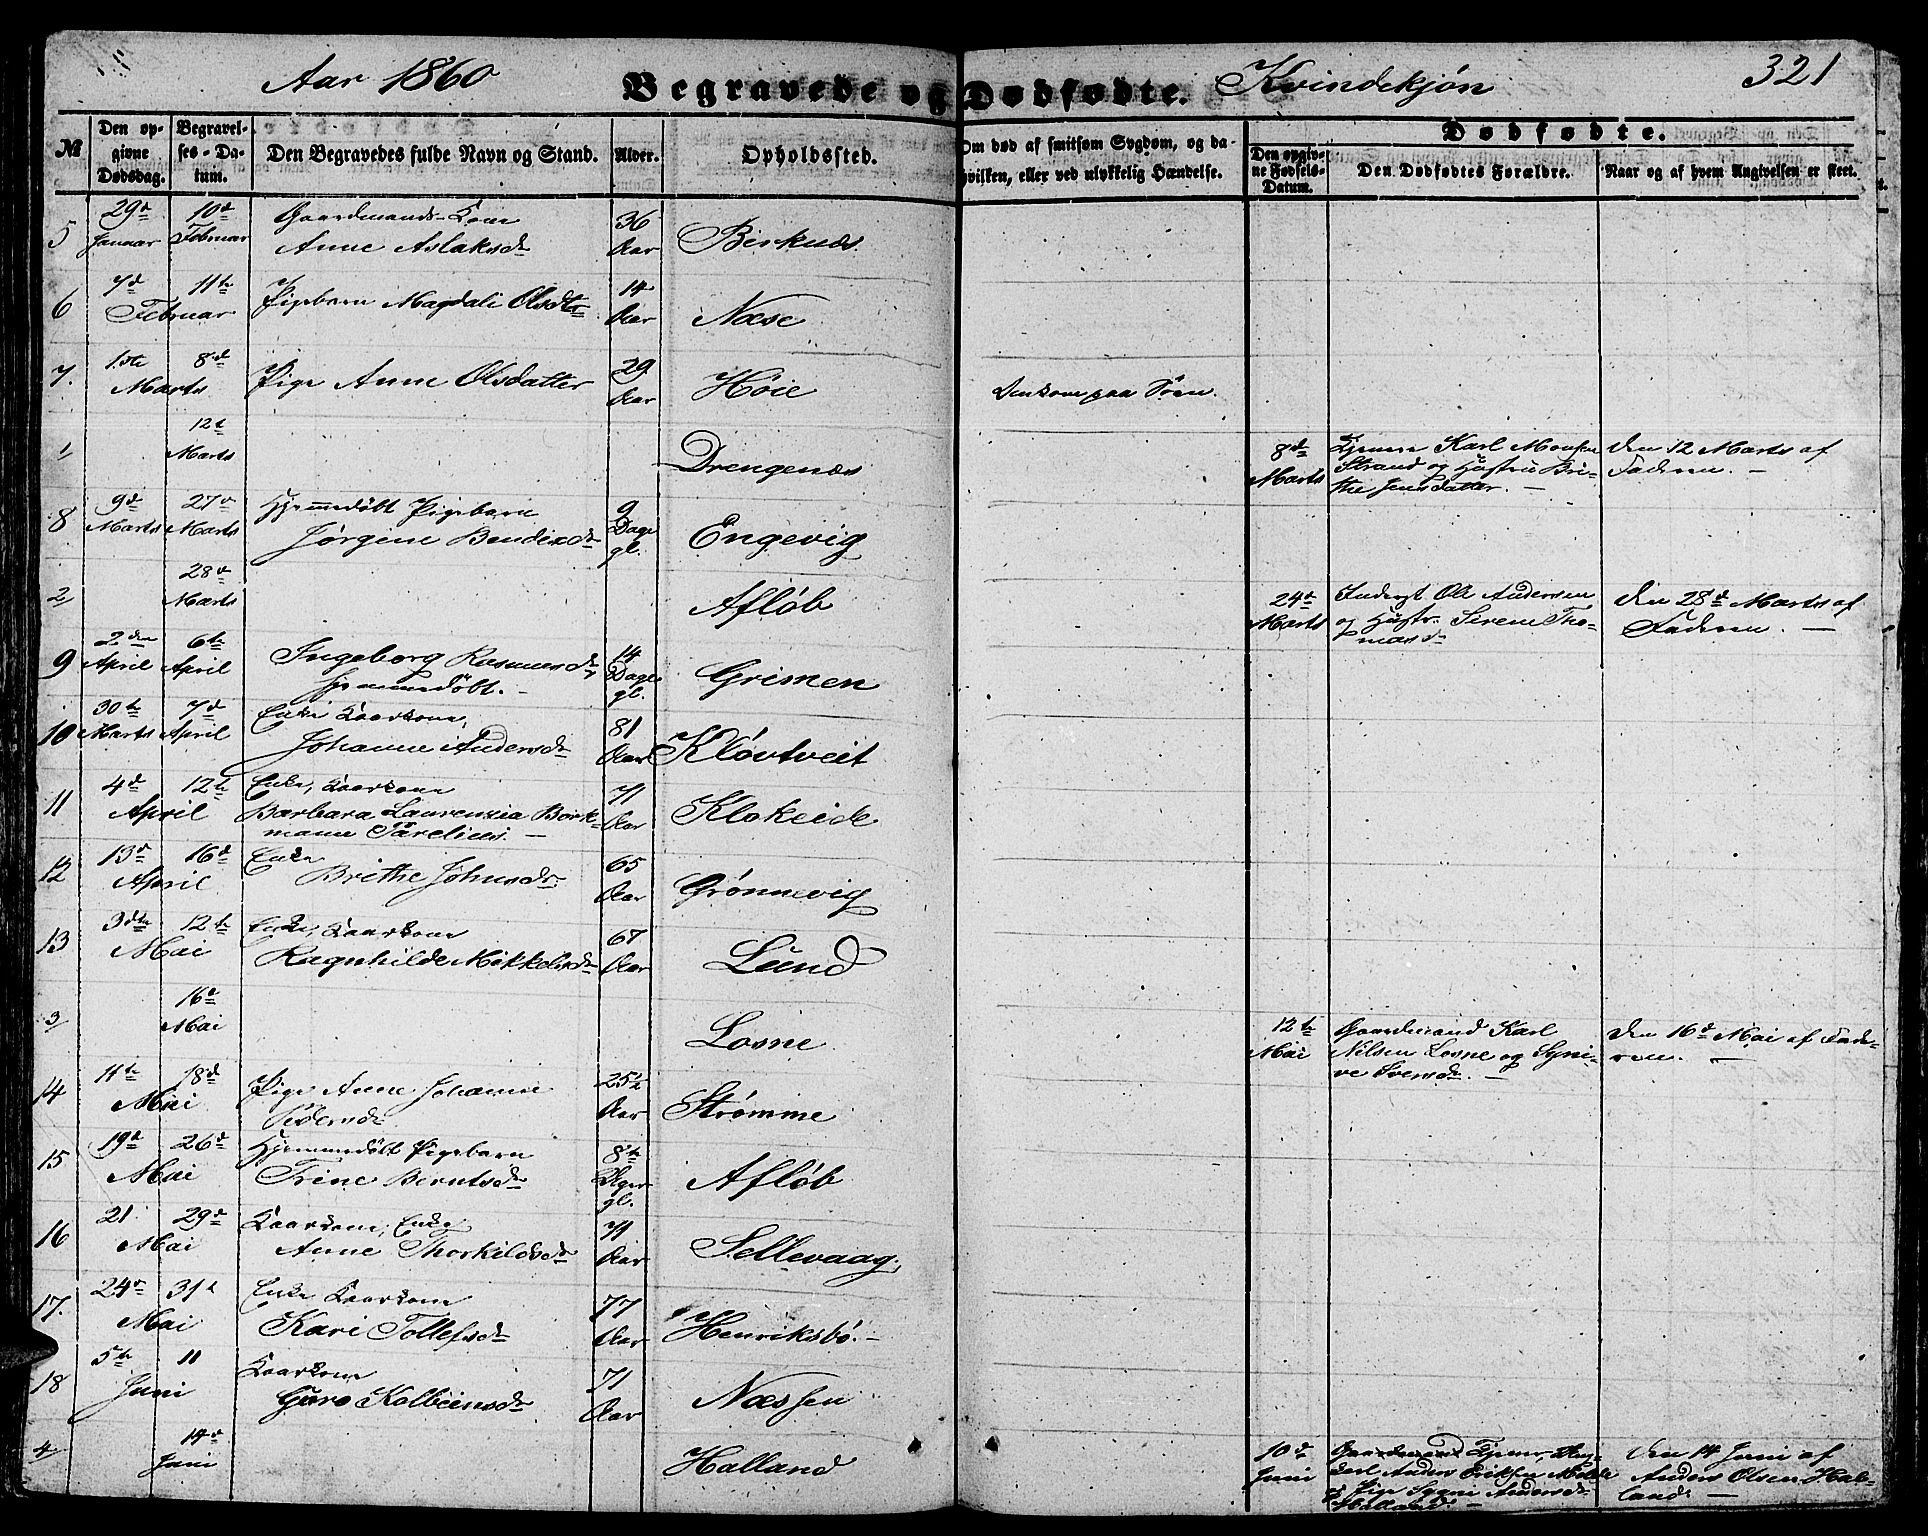 Aar 1860 Begravede og Dødfødte. Kvindekjøn 321
№ Den opgivne Dødsdag. Begravelses-Datum. Den Begravedes fulde Navn og Stand. Alder. Opholdssted. Om død af smitsom Sygdom, og da hvilken, eller ved ulykkelig Hændelse. Dødfødte. Den opgivne Fødsels-Datum. Den Dødfødtes Forældre. Naar og af hvem Angivelsen er skeet.
5 29d Januar 10d Februar Gaardmands-Kone Anne Aslaksdr 36 Aar Birknæs
6 7d 11te Februar Pigebarn Magdali Olsdtr 14 Aar Næse
7. 1ste 8d Marts Pige Anne Olsdatter 29 Aar Høie Omkom paa Søen.
1 12te Marts Drengenæs 8d Marts Tjener Karl Monsen Strand og Hustru Brithe Jensdatter. – Den 12 Marts af Faderen. –
8 9d Marts 27d Marts Hjemmedøbt Pigebarn Jørgine Bendixdr 9 Dage gl. Engevig
2 28d Marts Afløb 24d Marts Inderst Ole Andersen og Hustr. Sirene Thomasdr Den 28d Marts af Faderen. –
9 2den April 6te April Ingeborg Rasmusdr Hjemmedøbt. – 14 Dage gl. Grimen
10 30te Marts 7d April Enke Kaarkone, Johanne Andersdr 81 Aar Kløvtveit
11 4d 12te April Enke, Kaarkone Barbara Laurenzia Borkmann 71 Aar Klokeide
12 13d 16d April Enke Brithe Johnsdr 65 Aar Grønnevig
13 3die 12te Mai Enke, Kaarkone Ragnhilde Mikkelsdr 67 Aar Lund
3 16d Mai Losne 12te Mai Gaardmand Karl Nilsen Losne og Synive Svensdr. – Den 16d Mai af Faderen. –
14 11te 18d Mai Pige Anne Johanne Pedersdr 25½ Aar Strømme
15 19d 26d Mai Hjemmedøbt Pigebarn Trine Berntsdr 8te Uger gl. Afløb
16 21 29d Mai Kaarkone, Enke Anne Thorkildsdr 71 Aar Sellevaag
17. 24d 31d Mai Enke Kaarkone Kari Tollefsdr 77 Aar Henriksbø. –
18 5te 11 Juni Kaarkone Guro Kolbeinsdr 71 Aar Næssen
4 14d Juni Halland 10d Juni Gaardmand Tjener, Ungkarl Anders Eriksen Molde og Pige Sygni Andersdr Halland. – Den 14 Juni af Anders Olsen Halland. –